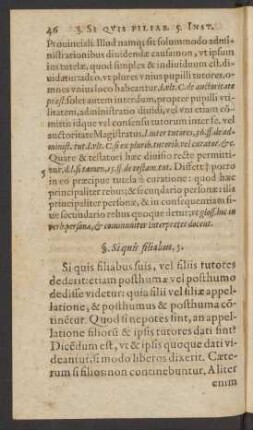 46 3. SI QVIS FILIAB. 5. INST.
Prouinciali. Illud namq; sit solummodo admi-
nistrationibus diuidendæ causamon, vt ipsum
ius tutelæ, quod simplex & indiuiduum est, di-
uidatur: adeo, vt plures vnius pupilli tutores, o-
mnes vnius loco habeantur, d.vlt. C. de auctoritate
præst. solet autem interdum, propter pupilli vti-
litatem, administratio diuidi, vel vni etiam cõ-
mitti: idque vel consensu tutorum inter se, vel
auctoritate Magistratus, l. inter tutores, 36. ff. de ad-
minist. tut. d.vlt. C. si ex plurib. tutorib. vel curator. &c.
Quare & testatori hæc diuisio rectè permitti-
5 tur, d. l. si tamen, 15. ff. de testam. tut. Differt † porro
in eo præcipuè tutela à curatione: quod hæc
principaliter rebus; & secundario personæ: illa
principaliter personæ, & in consequentiam si-
ue secundario rebus quoque detur: vt gloss. huc in
verb. persona, & communiter interpretes docent.
§. Si quis filiabus, 5.
Si quis filiabus suis, vel filiis tutores
dederit: etiam posthumæ vel posthumo
dedisse videtur: quia filii vel filiæ appel-
latione, & posthumus & posthuma cõ-
tinẽtur. Quod si nepotes sint, an appel-
latione filiorũ & ipsis tutores dati sint?
Dicẽdum est, vt & ipsis quoque dati vi-
deantur, si modo liberos dixerit. Cæte-
rum si filios: non continebuntur. Aliter
enim